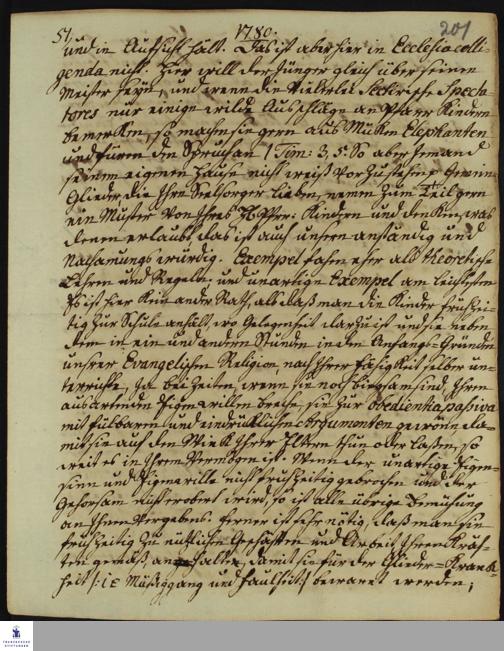 51. 1780. 201
und in Aufsicht hält. Das ist aber hier in Ecclesia colli-
genda nicht. Hier will der Jünger gleich über seinen
Meister seyn, und wenn die vielerlei Spectato-
tores nur einige wilde Ausschläge an Pfarr Kindern
bemerken, so machen sie gern aus Mücken Elephanten
und führen den Spruch an 1 Tim: 3, 5. So aber jemand
seinem eigenen Hause nicht weiß vorzustehen. Gemein
Glieder, die Ihre Seelsorger lieben, nemen zum Teil gern
ein Muster von Ihres Pfarr: Kindern und den
denen erlaubt, das ist auch unsern anständig und
Nachamungs würdig. Exempel faßen eher als theoretische
Lehren und Regeln und unartige Exempel am leichtesten
Es ist hier kein ander Rath, als daß man die Kinder frühzei-
tig zur Schule anhält, wo Gelegenheit darzu ist und sie neben
dem in ein und andern Stunden in den Anfangs-Gründen
unsrer Evangelischen Religion, nach Ihrer Fähigkeit selber un-
terrichte, Ja bei Zeiten, wenn sie noch biegsam sind, Ihren
ausartenden Eigenwillen breche, sie zur obedientia passiva
mit fülbaren und eindrücklichen Argumenten gewöne, da-
mit sie auf den Wink Ihrer Eltern thun oder laßen, so
weit es in Ihrem Vermögen ist. Wenn der unartige Eigen-
sinn und Eigenwille nicht frühzeitig gebrochen und der
Gehorsam nicht erobert wird, so ist alle übrige Bemühung
an Ihnen vergebens. Ferner ist sehr nötig, daß man sie
frühzeitig zu nützlichen Geschäften und Arbeit Ihren Kräf-
ten gemäß, anhalte, damit sie für der Glieder-Krank
heit /: ie Müßiggang und Faulheit :/ bewaret werden;
FRANCKESCHE
STIFTUNGEN